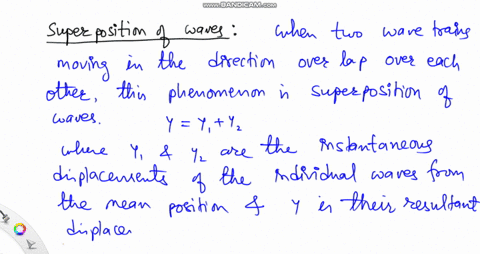 WWW.BANDICAM.COM
Superposition of waves: When two wave trains
moving in the direction over lap over each
other, this phenomenon is superposition of
waves. Y = Y1 + Y2
where Y1 & Y2 are the instantaneous
displacements of the individual waves from
the mean position & Y is their resultant
displacem